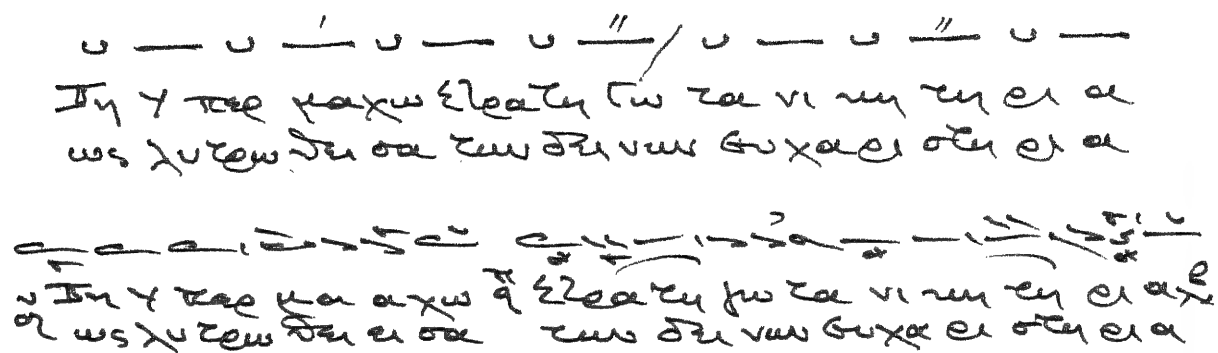 Τη υ περ μαχω στρατη γω τα νι κη τη ρι α
ως λυ τρω θει σα των δει νων ευ χα ρι στη ρι α
Τη υ περ μα α χω στρα τη γω τα νι κη τη ρι α
ως λυ τρω θει ει σα των δει νων ευ χα ρι στη ρι α